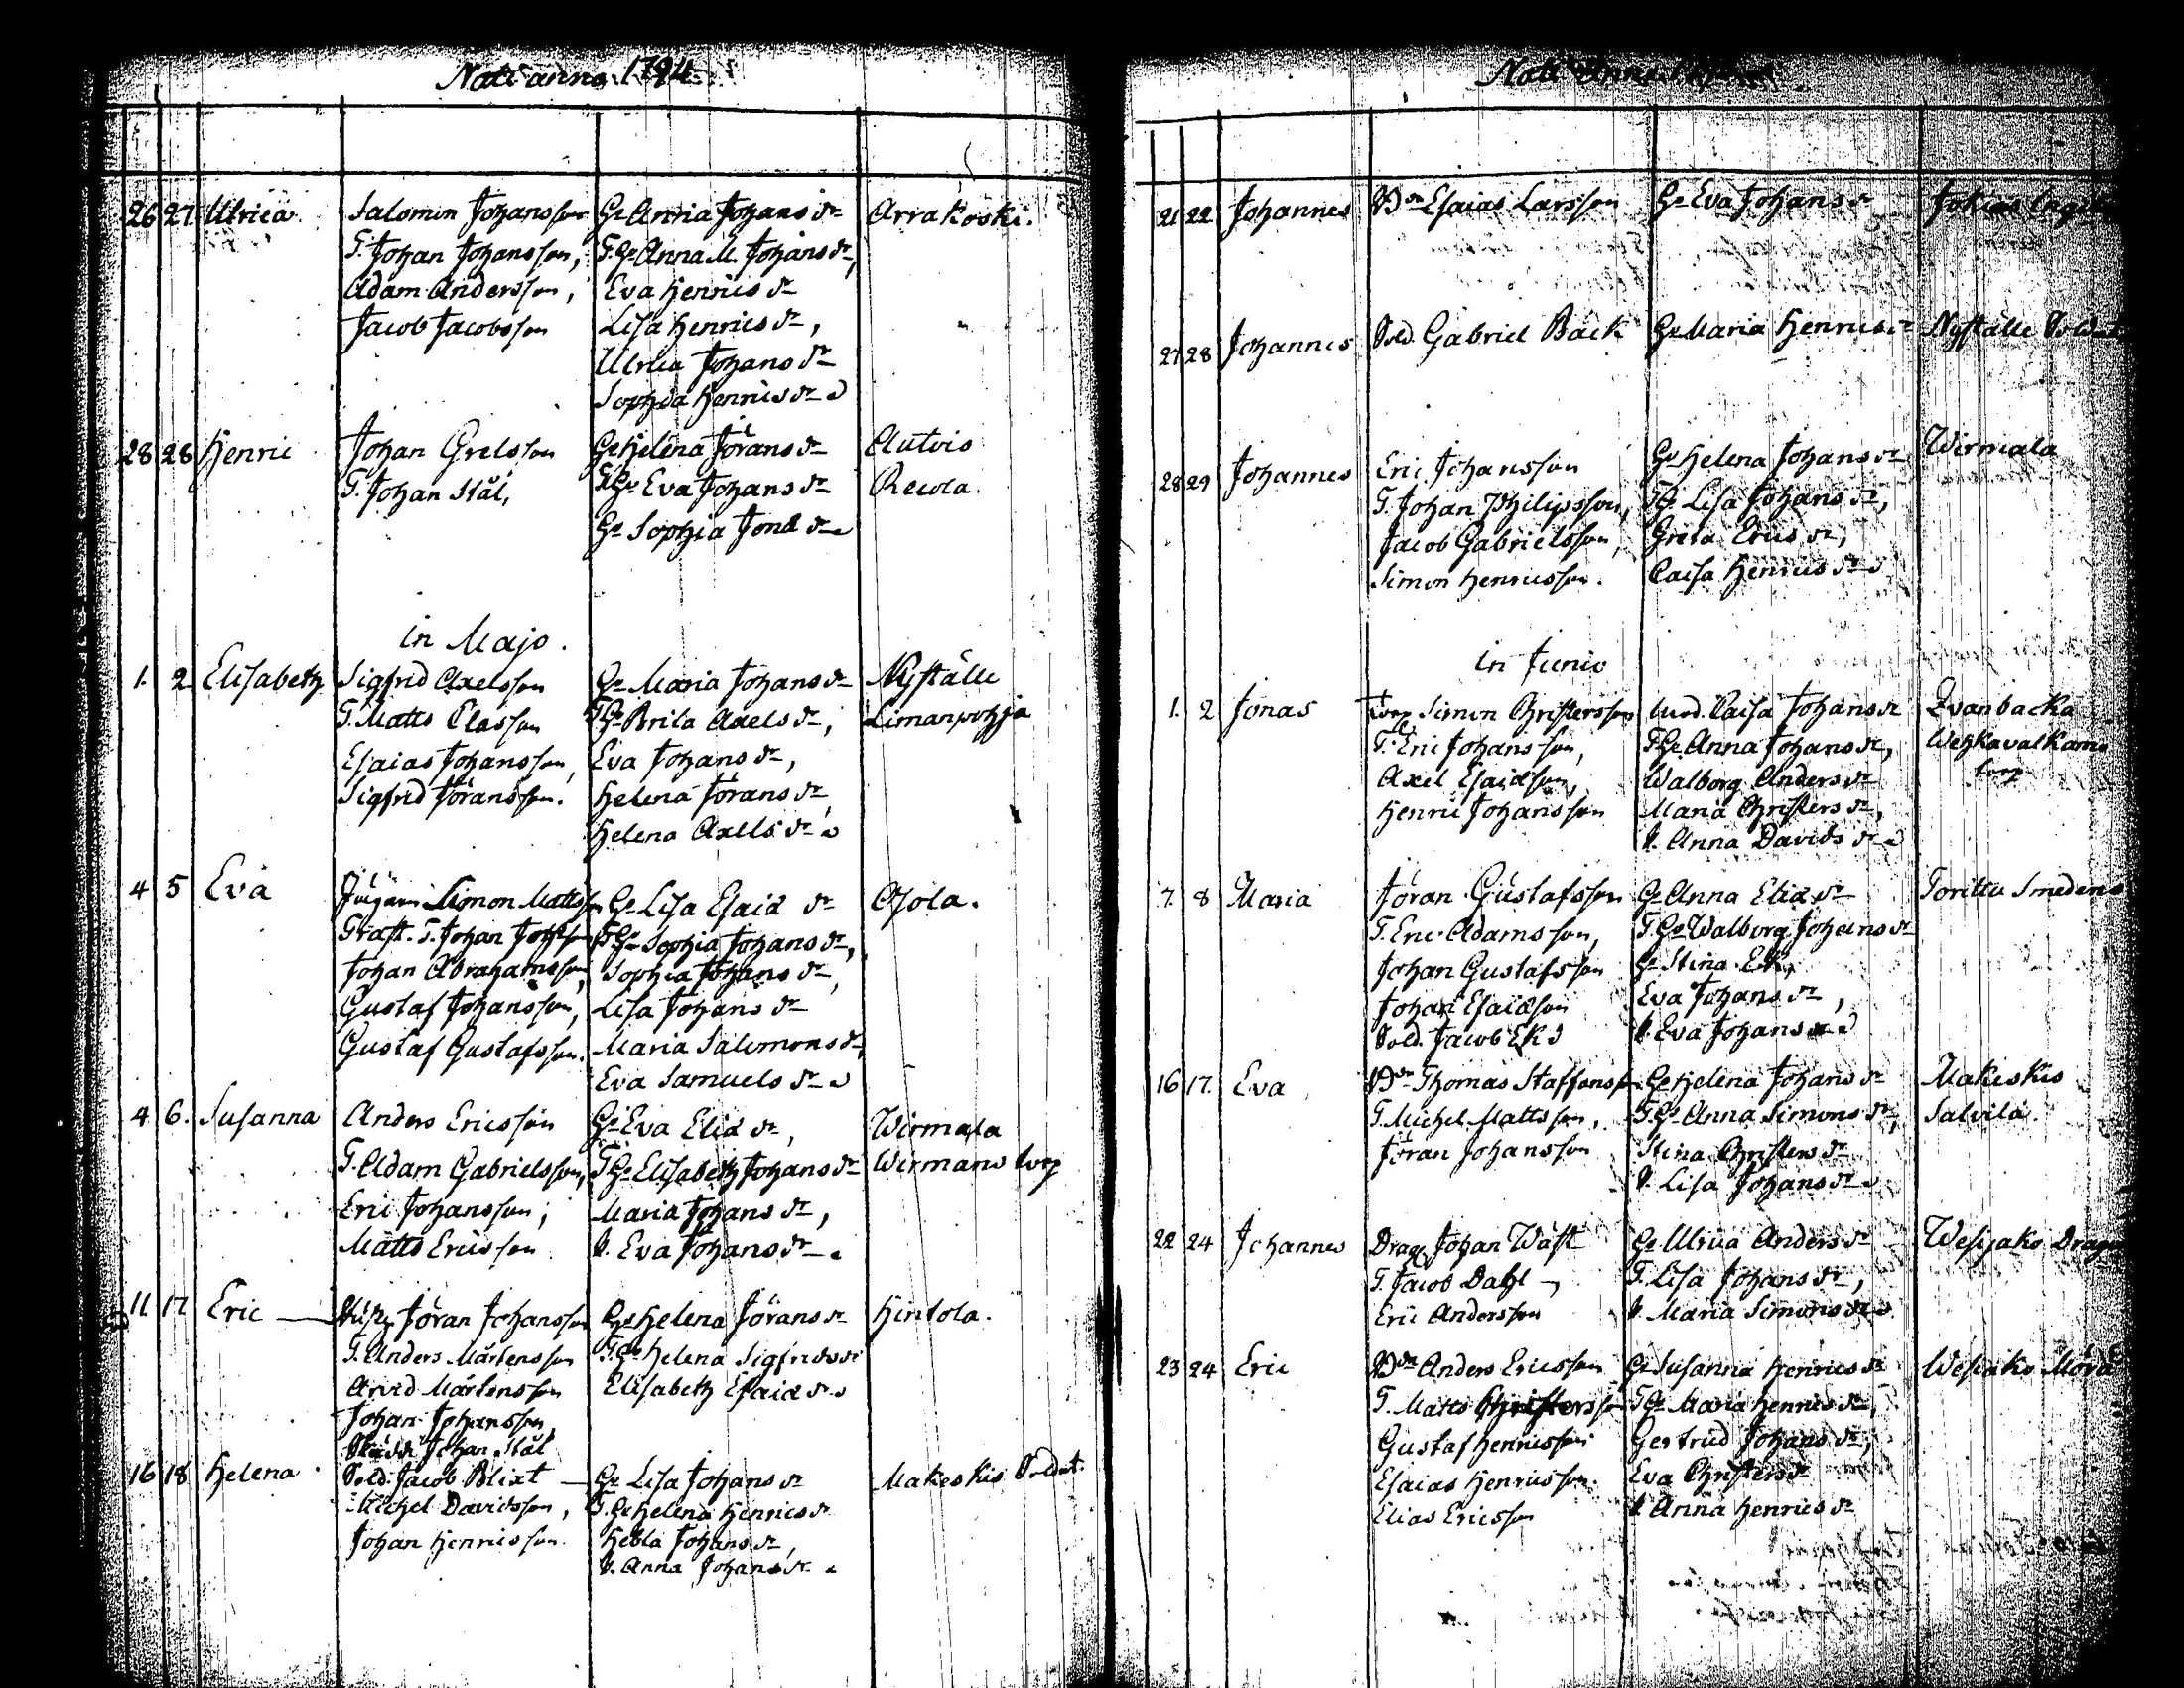 Nati anno 1794.
26 27 Ulrica. Salomon Johansson Ge Anna Johans dr Arrakoski.
T. Johan Johansson, T. Ge Anna M. Johans dr,
Adam Andersson, Eva Henrics dr
Jacob Jacobsson Lisa Henrics dr,
Ulrica Johans dr
Sophia Henrics dr
28 28 Henric Johan Grelsson Ge Helena Jörans dr Autois
T. Johan Stål, T. Ge Eva Johans dr Recola.
Ge Sophia Jonæ dr
in Majo.
1. 2 Elisabeth Sigfrid Axelsson Ge Maria Johans dr Nyställe
T. Matts Classon T. Ge Brita Axels dr, Limanpohja
Esaias Johansson, Eva Johans dr,
Sigfrid Jöransson. Helena Jörans dr,
Helena Axels dr
4 5 Eva Simon Mattsson Ge Lisa Esaiæ dr
T. Johan T. Ge Sophia Johans dr,
Johan Abrahamsson, Sophia Johans dr,
Gustaf Johansson, Lisa Johans dr
Gustaf Gustafsson. Maria Salomons dr,
Eva Samuels dr
4 6. Susanna Anders Ericsson Ge Eva Eliæ dr, Wirmala
T. Adam Gabrielsson, T. Ge Elisabeth Johans dr Wirmans torp
Eric Johansson, Maria Johans dr,
Matts Ericsson P. Eva Johans dr
11. 17. Eric Jöran Johansson Ge Helena Jörans dr Hintola.
T. Anders Mårtensson T. Ge Helena Sigfrids dr
Arvid Mårtensson Elisabeth Esaiæ dr
Johan Johansson,
Johan Stål
16 18 Helena Sold. Jacob Blixt Ge Lisa Johans dr Makeskis Soldat.
Michel Davidsson, T. Ge Helena Henrics dr
Johan Henricsson. Hebla Johans dr,
P. Anna Johans dr
Nati Anno
21 22 Johannes Bdn Esaias Larsson Ge Eva Johans dr
27 28 Johannes Sold. Gabriel Bäck Ge Maria Henrics dr Nyställe
28 29 Johannes Eric Johansson Ge Helena Johans dr Wirmala
T. Johan Philipsson, T. Lisa Johans dr,
Jacob Gabrielsson, Greta Erics dr,
Simon Henricsson. Caisa Henrics dr
in Junio
1. 2 Jonas Torp Simon Christersson Caisa Johans dr Evanbacka
T. Eric Johansson, T. Ge Anna Johans dr,
Axel Esaiæson, Walborg Anders dr torp
Henric Johansson Maria Christers dr,
P. Anna Davids dr
7. 8 Maria Jöran Gustafsson Ge Anna Eliæ dr Torittu
T. Eric Adamsson, T. Ge Walborg Johans dr
Johan Gustafsson Ge Stina Ek,
Johan Esaiæson Eva Johans dr,
Sold. Jacob Ek P. Eva Johans dr
16 17. Eva Bdn Thomas Staffansson Ge Helena Johans dr Makeskis
T. Michel Mattsson, T. Ge Anna Simons dr, Salvila
Jöran Johansson Stina Christers dr
P. Lisa Johans dr
22 24 Johannes Drag. Johan Wäst Ge Ulrica Anders dr Wesijako
T. Jacob Dahl, T. Lisa Johans dr,
Eric Andersson P. Maria Simons dr
23 24 Eric Bdn Anders Ericsson Ge Susanna Henrics dr Wesijako
T. Matts Christersson T. Ge Maria Henrics dr,
Gustaf Henricsson Gertrud Johans dr,
Esaias Henricsson. Eva Christers dr
Elias Ericsson P. Anna Henrics dr